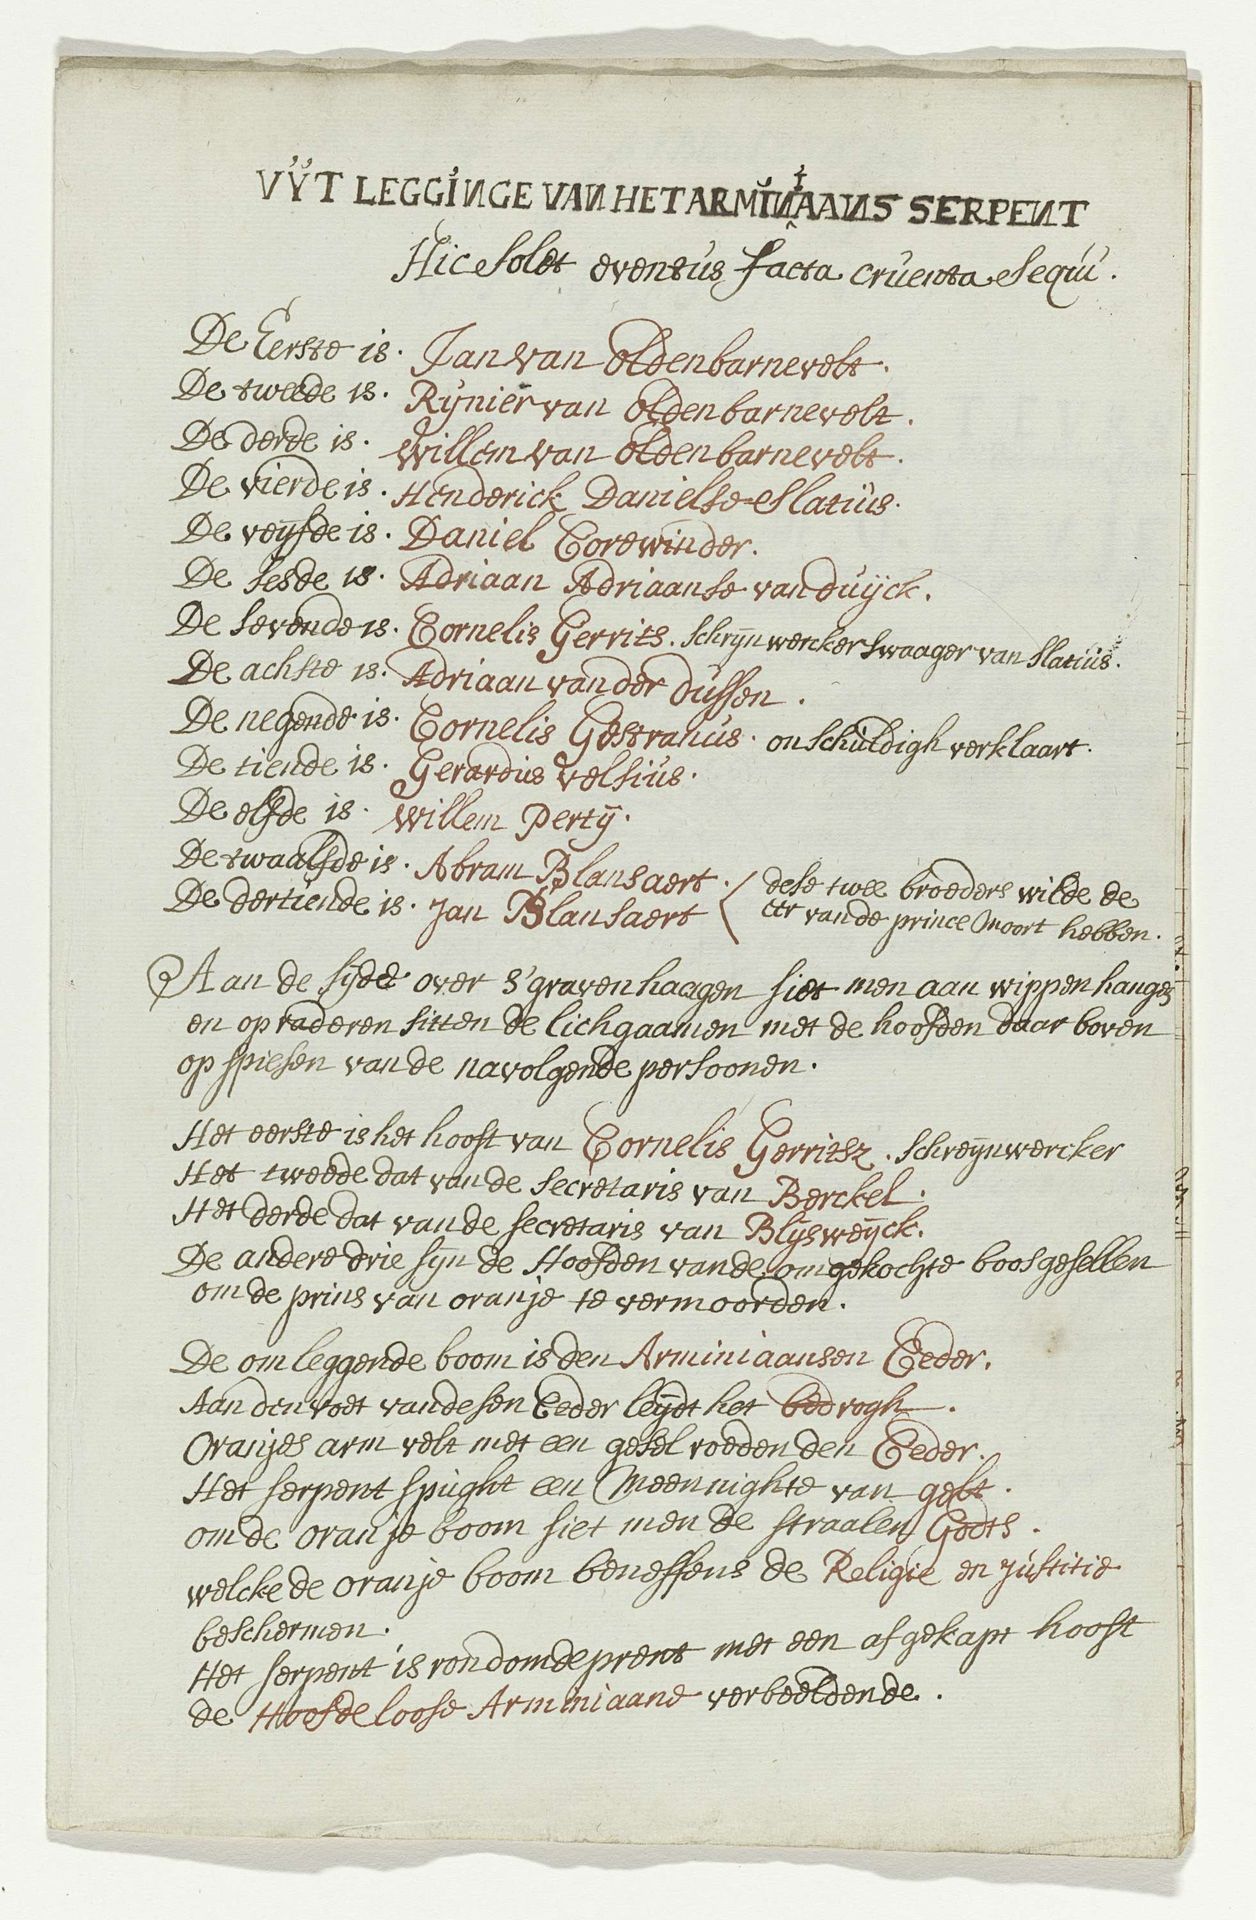 VŸT LEGGINGE VAN HET ARMINIAANS SERPENT
Hic solet eventus facta cruenta sequi.
De Eerste is. Jan van Oldenbarnevelt.
De tweede is. Rynier van Oldenbarnevelt.
De derde is. Willem van Oldenbarnevelt.
De vierde is. Henderick Danielse Slatius.
De veyfde is. Daniel Corewinder.
De sesde is. Adriaan Adriaanse van duÿck.
De sevende is. Cornelis Gerrits. schrÿnwercker swaager van Slatius.
De achste is. Adriaan van der dussen.
De negende is. Cornelis Gestranus. onschuldigh verklaart.
De tiende is. Gerardus velsius.
De elfde is. Willem Pertÿ.
De twaalfde is. Abram Blansaert.
De dertiende is. Jan Blansaert
dese twee broeders wilde de
eer van de prince Moort hebben.
Aan de sÿde over s'gravenhaagen siet men aan wippen hangen
en op raderen sitten de lichgaamen met de hoofden daar boven
op spiesen van de navolgende persoonen.
Het eerste is het hooft van Cornelis Gerritsz. schreÿnwercker
Het tweede dat van de secretaris van Berckel.
Het derde dat van de secretaris van Blÿsweÿck.
De andere drie sÿn de Hoofden van de omgekochte boosgesellen
om de prins van oranje te vermoorden.
De omleggende boom is den Arminiaansen Ceder.
Aan den voet van desen Ceder leÿdt het bedrogh.
Oranjes arm velt met een gesel roedden den Ceder.
Het serpent spught een Meennighte van gelt.
om de oranje boom siet men de straalen Godts.
welcke de oranje boom beneffens de Religie en justitie
beschermen.
Het serpent is rondom de prent met een afgekapt hooft
de Hoofdeloose Arminiaane verbeeldende.